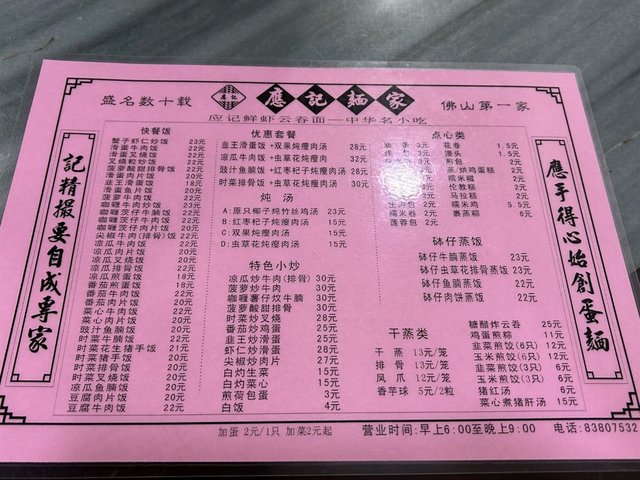 盛名数十载
應記
應記麵家
佛山第一家
应记鲜虾云吞面—中华名小吃
記精撮要自成專家
應手得心始創蛋麵
快餐饭
蟹子虾仁炒饭 23元
滑蛋牛肉饭 22元
滑蛋叉烧饭 22元
叉烧粒炒饭 22元
菠萝酸甜排骨饭 22元
滑蛋肉片饭 20元
韭王滑蛋饭 18元
滑蛋鱼片饭 20元
菠萝牛肉饭 22元
咖喱牛肉炒饭
咖喱茨仔牛肉饭 22元
咖喱茨仔牛腩饭 22元
尖椒牛肉(排骨)饭 22元
凉瓜牛肉饭 22元
凉瓜肉片饭 20元
凉瓜排骨饭 22元
凉瓜煎蛋饭 18元
番茄煎蛋饭 18元
番茄牛肉饭 22元
番茄肉片饭 20元
菜心牛肉饭 22元
菜心肉片饭 20元
豉汁鱼腩饭 20元
时菜牛腩饭 22元
时菜花生猪手饭 21元
时菜猪手饭 20元
时菜排骨饭 22元
时菜叉烧饭 20元
凉瓜鱼腩饭 20元
豆腐肉片饭 20元
豆腐牛肉饭 22元
优惠套餐
韭王滑蛋饭+双果炖瘦肉汤 28元
凉瓜牛肉饭+虫草花炖瘦肉 32元
豉汁鱼腩饭+红枣杞子炖瘦肉汤 28元
时菜排骨饭+虫草花炖瘦肉汤 30元
炖汤
A:原只椰子炖竹丝鸡汤 23元
B:红枣杞子炖瘦肉汤 15元
C:双果炖瘦肉汤 15元
D:虫草花炖瘦肉汤 15元
特色小炒
凉瓜炒牛肉(排骨) 30元
菠萝炒牛肉 30元
咖喱薯仔炆牛腩 30元
菠萝酸甜排骨 30元
时菜炒叉烧 28元
番茄炒鸡蛋 25元
韭王炒滑蛋 25元
虾仁炒滑蛋 28元
尖椒炒肉片 27元
白灼生菜 15元
白灼菜心 15元
煎荷包蛋 3元
白饭 4元
点心类
花卷 1.5元
馒头 1.5元
煎包 2元
蒸/烘鸡蛋糕 2元
糯米糍 2元
伦教糕 2元
马拉糕 2元
糯米鸡 5元
糯米卷 2元
裹蒸粽 6元
莲蓉包 2元
砵仔蒸饭
砵仔牛腩蒸饭 23元
砵仔虫草花排骨蒸饭 23元
砵仔鱼腩蒸饭 22元
砵仔肉饼蒸饭 22元
干蒸类
干蒸 13元/笼
排骨 13元/笼
凤爪 12元/笼
香芋球 5元/2粒
糖醋炸云吞 25元
鸡蛋煎粽 11元
韭菜煎饺(6只) 12元
玉米煎饺(6只) 12元
韭菜煎饺(3只) 6元
玉米煎饺(3只) 6元
猪红汤 6元
菜心煮猪肝汤 15元
加蛋 2元/1只 加菜2元起
营业时间:早上6:00至晚上9:00
电话:83807532